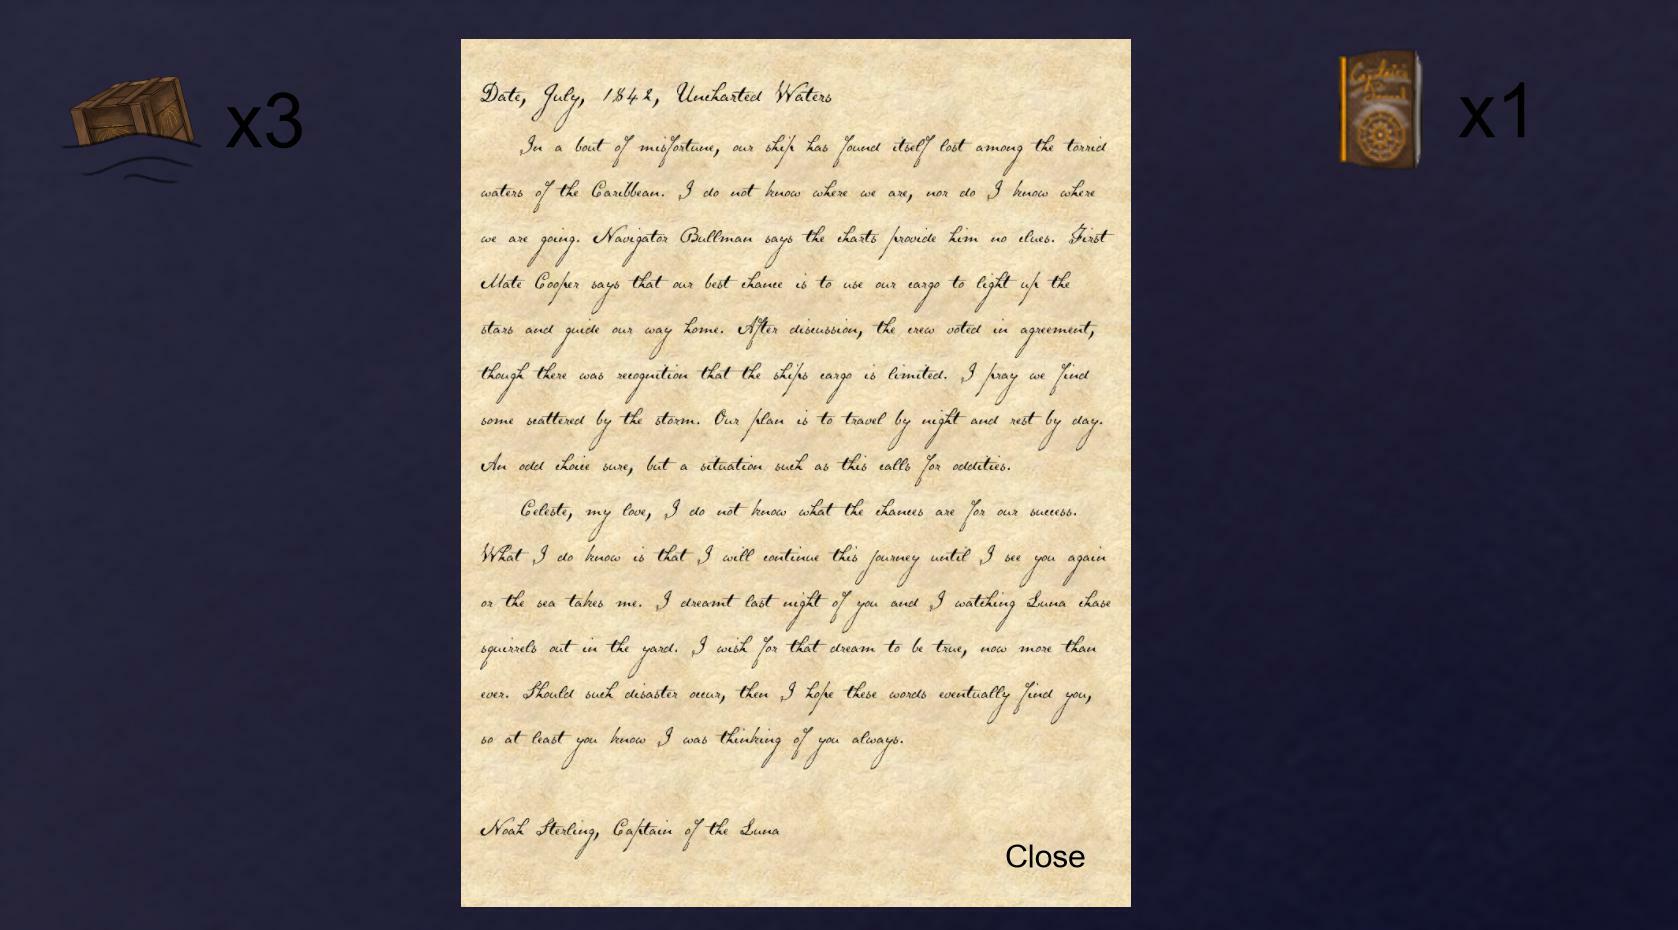 x3
Captain's Journal
x1
Date, July, 1842, Uncharted Waters
In a bout of misfortune, our ship has found itself lost among the torrid
waters of the Caribbean. I do not know where we are, nor do I know where
we are going. Navigator Bullman says the charts provide him no clues. First
Mate Cooper says that our best chance is to use our cargo to light up the
stars and guide our way home. After discussion, the crew voted in agreement,
though there was recognition that the ships cargo is limited. I pray we find
some scattered by the storm. Our plan is to travel by night and rest by day.
An odd choice sure, but a situation such as this calls for oddities.
Celeste, my love, I do not know what the chances are for our success.
What I do know is that I will continue this journey until I see you again
or the sea takes me. I dreamt last night of you and I watching Luna chase
squirrels out in the yard. I wish for that dream to be true, now more than
ever. Should such disaster occur, then I hope these words eventually find you,
so at least you know I was thinking of you always.
Noah Sterling, Captain of the Luna
Close